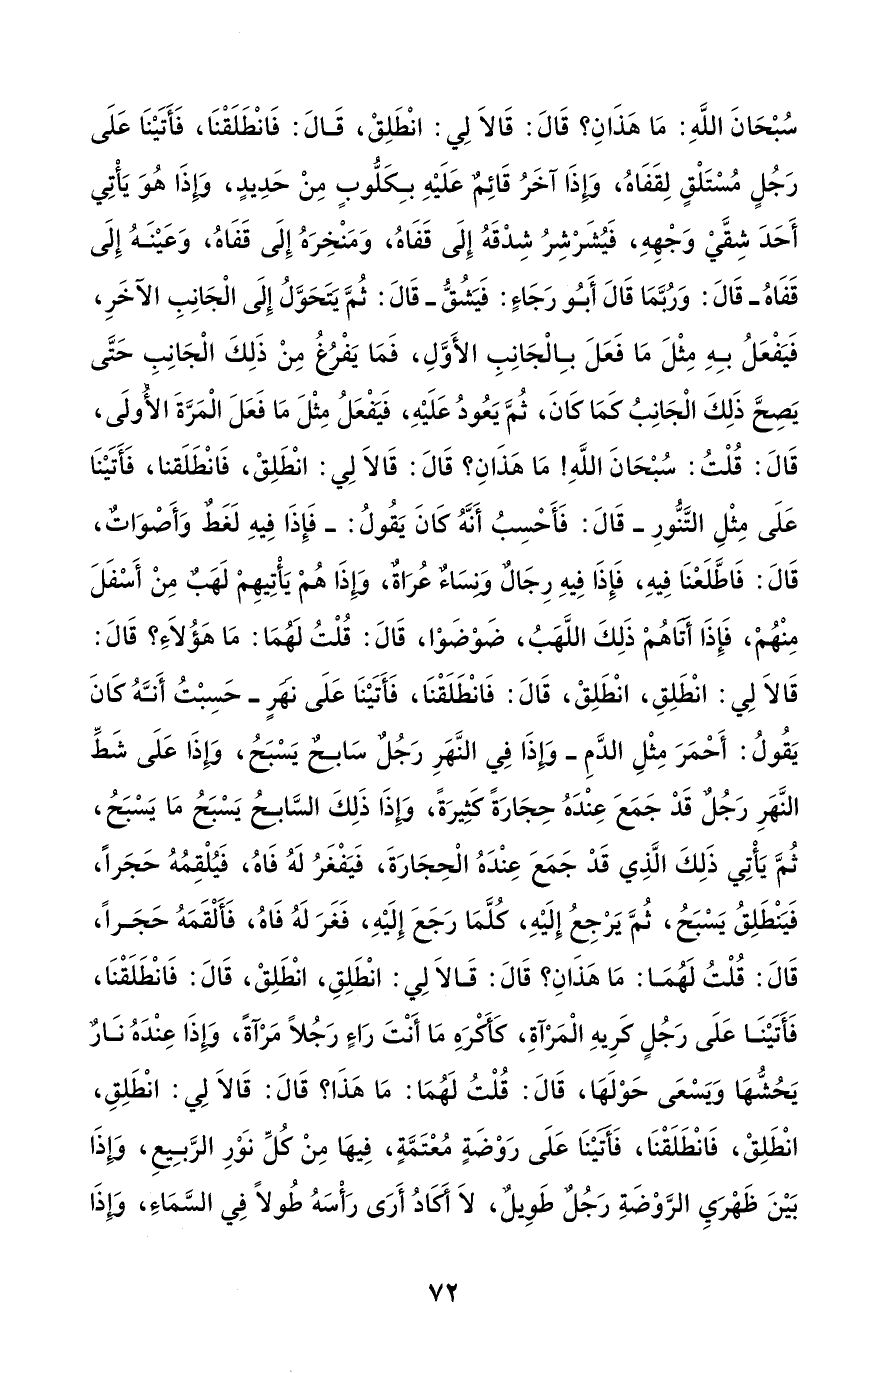 سُبْحَانَ اللَّهِ: مَا هَذَانِ؟ قَالَ: قَالاَ لِي: انْطَلِقْ، قَالَ: فَانْطَلَقْنَا، فَأَتَيْنَا عَلَى
رَجُلٍ مُسْتَلْقٍ لِقَفَاهُ، وَإِذَا آخَرُ قَائِمٌ عَلَيْهِ بِكَلُّوبٍ مِنْ حَدِيدٍ، وَإِذَا هُوَ يَأْتِي
أَحَدَ شِقَّيْ وَجْهِهِ، فَيُشَرْشِرُ شِدْقَهُ إِلَى قَفَاهُ، وَمَنْخِرَهُ إِلَى قَفَاهُ، وَعَيْنَهُ إِلَى
قَفَاهُ ـ قَالَ: وَرُبَّمَا قَالَ أَبُو رَجَاءٍ: فَيَشُقُّ ـ قَالَ: ثُمَّ يَتَحَوَّلُ إِلَى الْجَانِبِ الآخَرِ،
فَيَفْعَلُ بِهِ مِثْلَ مَا فَعَلَ بِالْجَانِبِ الأَوَّلِ، فَمَا يَفْرُغُ مِنْ ذَلِكَ الْجَانِبِ حَتَّى
يَصِحَّ ذَلِكَ الْجَانِبُ كَمَا كَانَ، ثُمَّ يَعُودُ عَلَيْهِ، فَيَفْعَلُ مِثْلَ مَا فَعَلَ الْمَرَّةَ الأُولَى،
قَالَ: قُلْتُ: سُبْحَانَ اللَّهِ! مَا هَذَانِ؟ قَالَ: قَالاَ لِي: انْطَلِقْ، فَانْطَلَقنا، فَأَتَيْنَا
عَلَى مِثْلِ التَّنُّورِ ـ قَالَ: فَأَحْسِبُ أَنَّهُ كَانَ يَقُولُ: ـ فَإِذَا فِيهِ لَغَطٌ وَأَصْوَاتٌ،
قَالَ: فَاطَّلَعْنَا فِيهِ، فَإِذَا فِيهِ رِجَالٌ وَنِسَاءٌ عُرَاةٌ، وَإِذَا هُمْ يَأْتِيهِمْ لَهَبٌ مِنْ أَسْفَلَ
مِنْهُمْ، فَإِذَا أَتَاهُمْ ذَلِكَ اللَّهَبُ، ضَوْضَوْا، قَالَ: قُلْتُ لَهُمَا: مَا هَؤُلاَءِ؟ قَالَ:
قَالاَ لِي: انْطَلِقِ، انْطَلِقْ، قَالَ: فَانْطَلَقْنَا، فَأَتَيْنَا عَلَى نَهَرٍ ـ حَسِبْتُ أَنَّهُ كَانَ
يَقُولُ: أَحْمَرَ مِثْلِ الدَّمِ ـ وَإِذَا فِي النَّهَرِ رَجُلٌ سَابِحٌ يَسْبَحُ، وَإِذَا عَلَى شَطِّ
النَّهَرِ رَجُلٌ قَدْ جَمَعَ عِنْدَهُ حِجَارَةً كَثِيرَةً، وَإِذَا ذَلِكَ السَّابِحُ يَسْبَحُ مَا يَسْبَحُ،
ثُمَّ يَأْتِي ذَلِكَ الَّذِي قَدْ جَمَعَ عِنْدَهُ الْحِجَارَةَ، فَيَفْغَرُ لَهُ فَاهُ، فَيُلْقِمُهُ حَجَراً،
فَيَنْطَلِقُ يَسْبَحُ، ثُمَّ يَرْجِعُ إِلَيْهِ، كُلَّمَا رَجَعَ إِلَيْهِ، فَغَرَ لَهُ فَاهُ، فَأَلْقَمَهُ حَجَراً،
قَالَ: قُلْتُ لَهُمَا: مَا هَذَانِ؟ قَالَ: قَالاَ لِي: انْطَلِقِ، انْطَلِقْ، قَالَ: فَانْطَلَقْنَا،
فَأَتَيْنَا عَلَى رَجُلٍ كَرِيهِ الْمَرْآةِ، كَأَكْرَهِ مَا أَنْتَ رَاءٍ رَجُلاً مَرْآةً، وَإِذَا عِنْدَهُ نَارٌ
يَحُشُّهَا وَيَسْعَى حَوْلَهَا، قَالَ: قُلْتُ لَهُمَا: مَا هَذَا؟ قَالَ: قَالاَ لِي: انْطَلِقِ،
انْطَلِقْ، فَانْطَلَقْنَا، فَأَتَيْنَا عَلَى رَوْضَةٍ مُعْتَمَّةٍ، فِيهَا مِنْ كُلِّ نَوْرِ الرَّبِيعِ، وَإِذَا
بَيْنَ ظَهْرَيِ الرَّوْضَةِ رَجُلٌ طَوِيلٌ، لاَ أَكَادُ أَرَى رَأْسَهُ طُولاً فِي السَّمَاءِ، وَإِذَا
٧٢